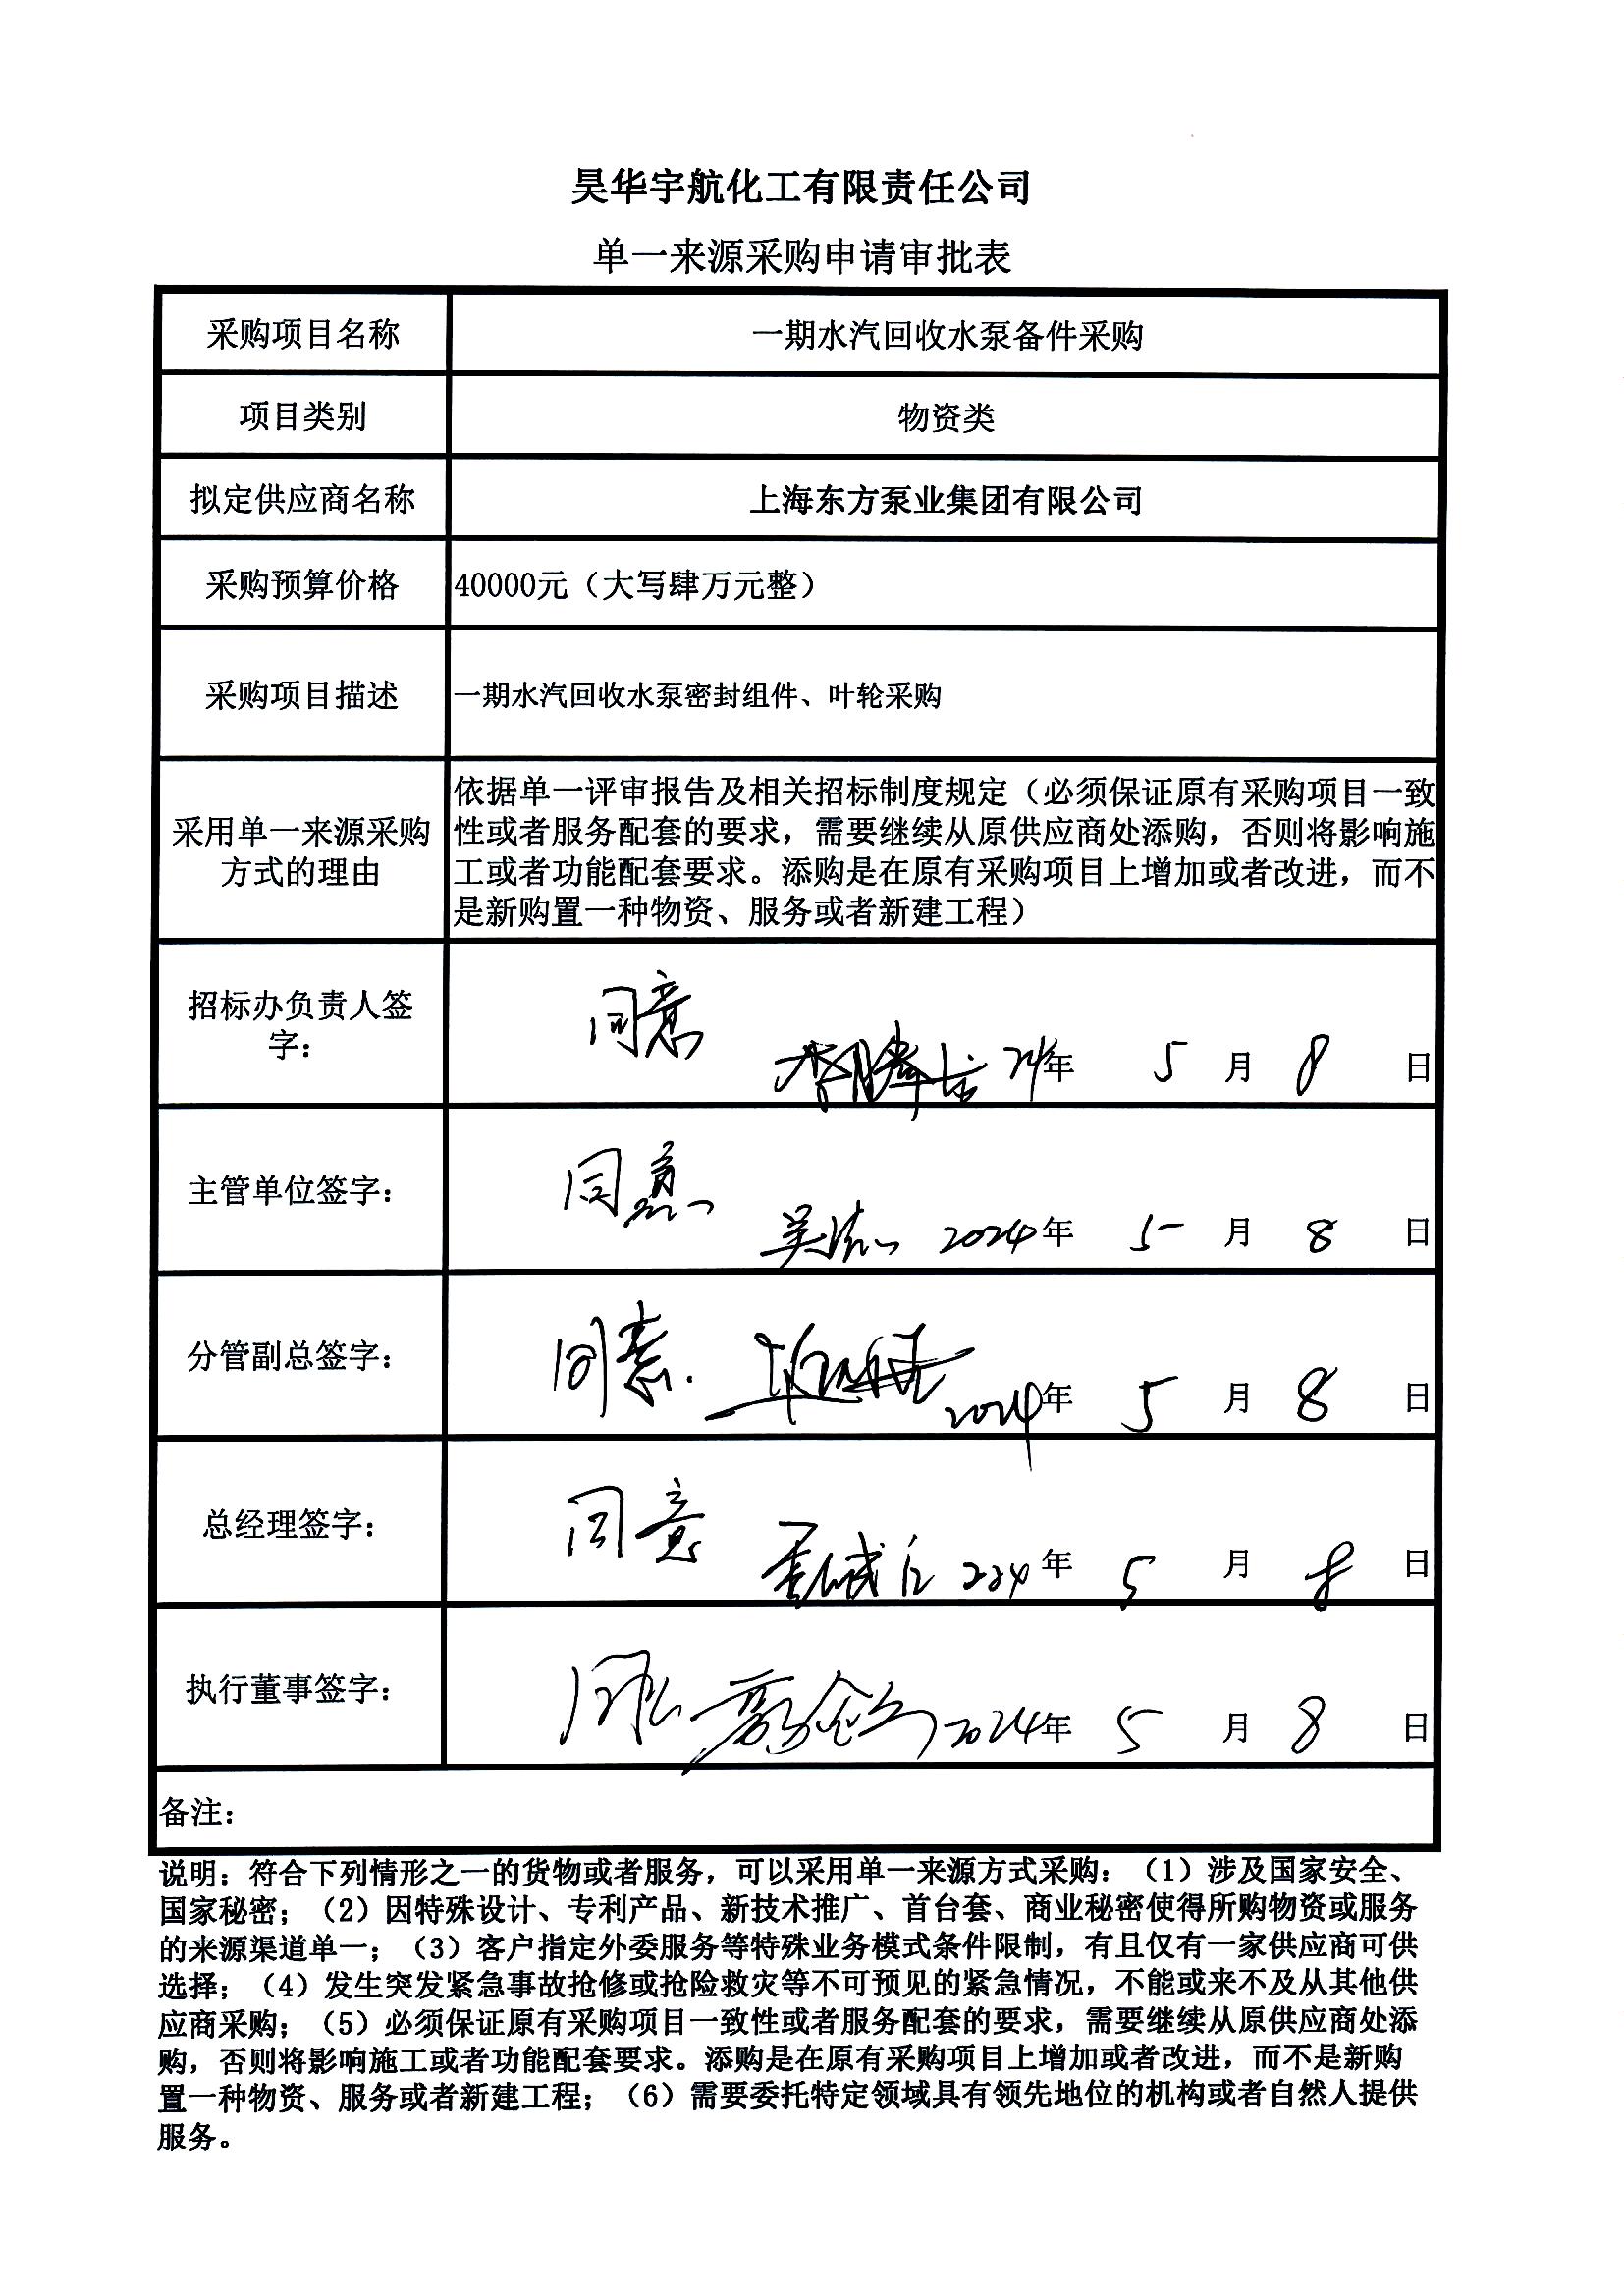 昊华宇航化工有限责任公司
单一来源采购申请审批表
采购项目名称
一期水汽回收水泵备件采购
项目类别
物资类
拟定供应商名称
上海东方泵业集团有限公司
采购预算价格
40000元（大写肆万元整）
采购项目描述
一期水汽回收水泵密封组件、叶轮采购
采用单一来源采购
方式的理由
依据单一评审报告及相关招标制度规定（必须保证原有采购项目一致
性或者服务配套的要求，需要继续从原供应商处添购，否则将影响施
工或者功能配套要求。添购是在原有采购项目上增加或者改进，而不
是新购置一种物资、服务或者新建工程）
招标办负责人签
字：
同意
24年 5 月 8 日
主管单位签字：
同意
2024年 5 月 8 日
分管副总签字：
同意.
2024年 5 月 8 日
总经理签字：
同意
年 5 月 8 日
执行董事签字：
同意
2024年 5 月 8 日
备注：
说明：符合下列情形之一的货物或者服务，可以采用单一来源方式采购：（1）涉及国家安全、
国家秘密；（2）因特殊设计、专利产品、新技术推广、首台套、商业秘密使得所购物资或服务
的来源渠道单一；（3）客户指定外委服务等特殊业务模式条件限制，有且仅有一家供应商可供
选择；（4）发生突发紧急事故抢修或抢险救灾等不可预见的紧急情况，不能或来不及从其他供
应商采购；（5）必须保证原有采购项目一致性或者服务配套的要求，需要继续从原供应商处添
购，否则将影响施工或者功能配套要求。添购是在原有采购项目上增加或者改进，而不是新购
置一种物资、服务或者新建工程；（6）需要委托特定领域具有领先地位的机构或者自然人提供
服务。